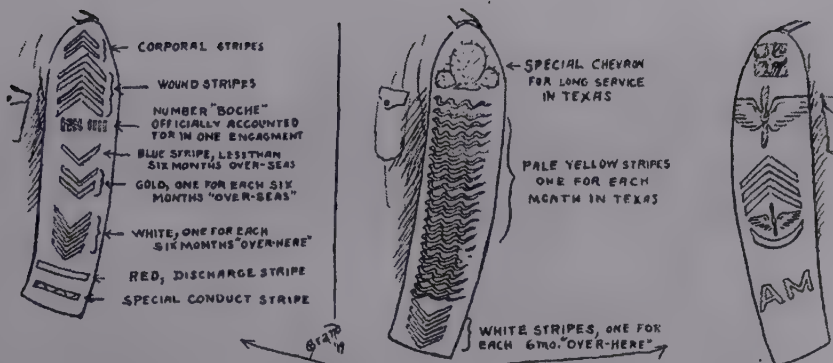 CORPORAL STRIPES
WOUND STRIPES
NUMBER "BOCHE"
OFFICIALLY ACCOUNTED
FOR IN ONE ENGAGMENT
BLUE STRIPE, LESS THAN
SIX MONTHS OVER-SEAS
GOLD, ONE FOR EACH SIX
MONTHS "OVER-SEAS"
WHITE, ONE FOR EACH
SIX MONTHS "OVER-HERE"
RED, DISCHARGE STRIPE
SPECIAL CONDUCT STRIPE
SPECIAL CHEVRON
FOR LONG SERVICE
IN TEXAS
PALE YELLOW STRIPES
ONE FOR EACH
MONTH IN TEXAS
WHITE STRIPES, ONE FOR
EACH 6 MO. "OVER-HERE"
AM